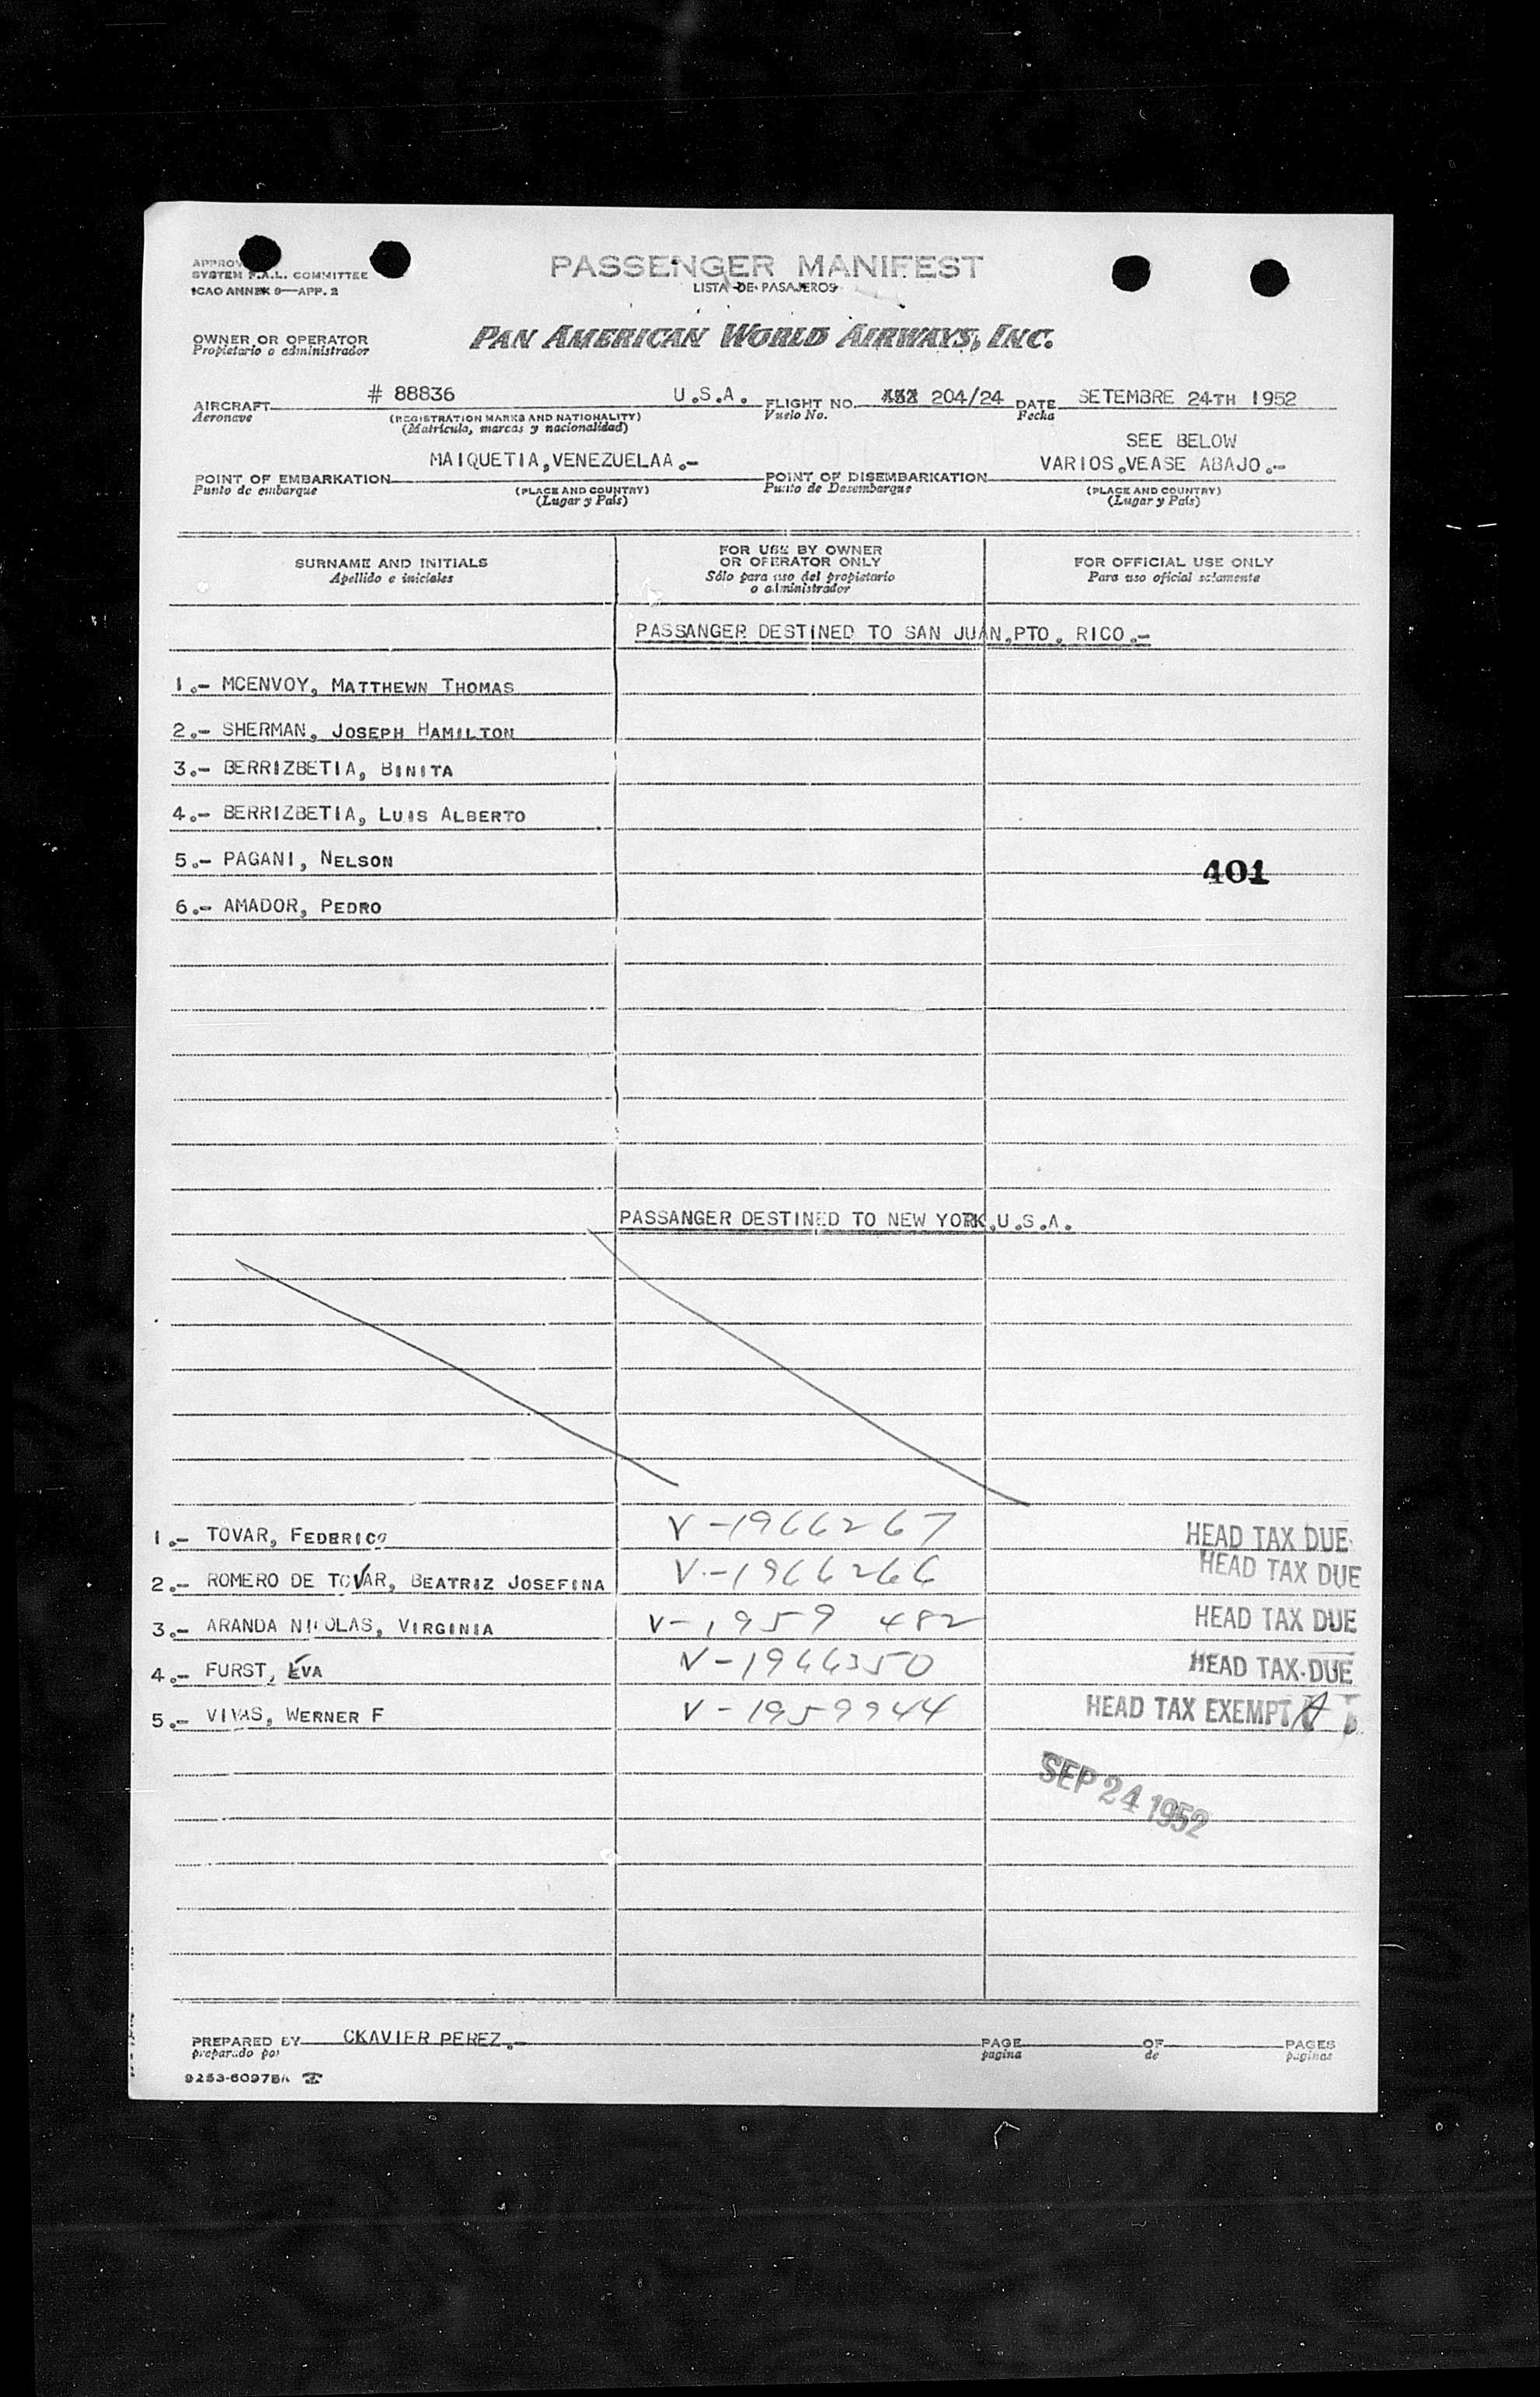 PASSENGER MANIFEST
LISTA DE PASAJEROS
SYSTEM F.A.L. COMMITTEE
ICAO ANNEX 9—APP. 2
OWNER OR OPERATOR
Propietario o administrador
PAN AMERICAN WORLD AIRWAYS, INC.
AIRCRAFT # 88836 U.S.A. FLIGHT NO. 204/24 DATE SETEMBRE 24TH 1952
Aeronave (REGISTRATION MARKS AND NATIONALITY) Vuelo No. Fecha
(Matrícula, marcas y nacionalidad)
SEE BELOW
POINT OF EMBARKATION MAIQUETIA,VENEZUELAA.- POINT OF DISEMBARKATION VARIOS,VEASE ABAJO.-
Punto de embarque (PLACE AND COUNTRY) Punto de Desembarque (PLACE AND COUNTRY)
(Lugar y País) (Lugar y País)
SURNAME AND INITIALS
Apellido e iniciales
FOR USE BY OWNER
OR OPERATOR ONLY
Sólo para uso del propietario
o administrador
FOR OFFICIAL USE ONLY
Para uso oficial solamente
PASSANGER DESTINED TO SAN JUAN,PTO. RICO.-
1.- MCENVOY, MATTHEWN THOMAS
2.- SHERMAN, JOSEPH HAMILTON
3.- BERRIZBETIA, BINITA
4.- BERRIZBETIA, LUIS ALBERTO
5.- PAGANI, NELSON
401
6.- AMADOR, PEDRO
PASSANGER DESTINED TO NEW YORK,U.S.A.
1.- TOVAR, FEDERICO V-1966267 HEAD TAX DUE
2.- ROMERO DE TOVAR, BEATRIZ JOSEFINA V-1966266 HEAD TAX DUE
3.- ARANDA NICOLAS, VIRGINIA V-1959 482 HEAD TAX DUE
4.- FURST, EVA V-1966350 HEAD TAX DUE
5.- VIVAS, WERNER F V-1959944 HEAD TAX EXEMPT
SEP 24 1952
PREPARED BY CKAVIER PEREZ.- PAGE OF PAGES
preparado por pagina de paginas
9253-60975A